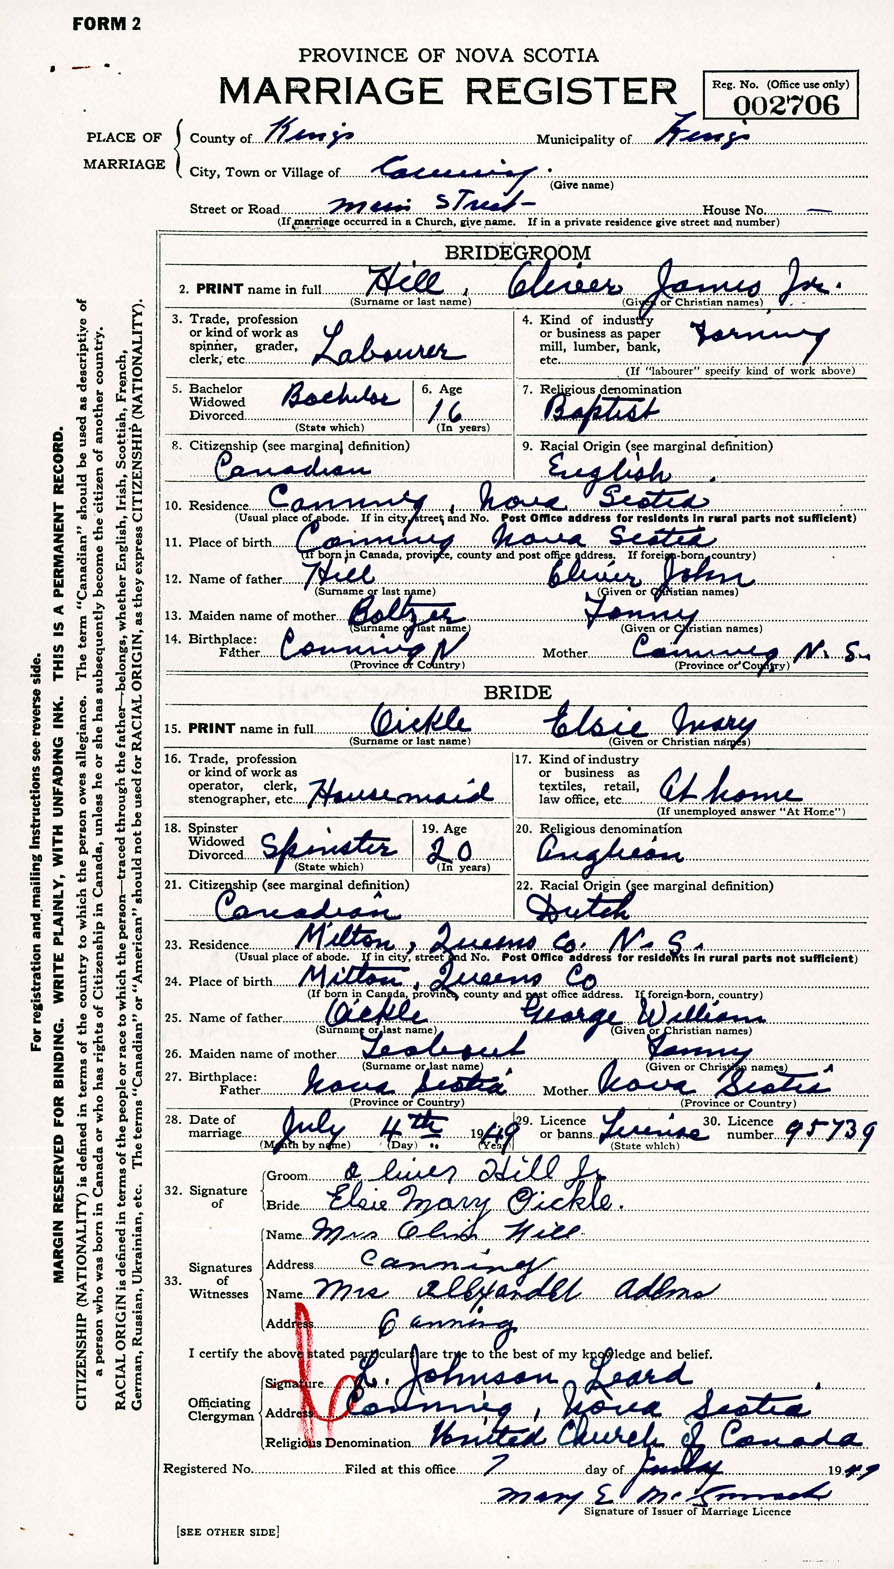 FORM 2
PROVINCE OF NOVA SCOTIA
MARRIAGE REGISTER
Reg. No. (Office use only)
002706
PLACE OF MARRIAGE
County of Kings Municipality of Kings
City, Town or Village of Canning.
(Give name)
Street or Road Main Street - House No. —
(If marriage occurred in a Church, give name. If in a private residence give street and number)
BRIDEGROOM
2. PRINT name in full Hill, Oliver James Jr.
(Surname or last name) (Given or Christian names)
3. Trade, profession or kind of work as spinner, grader, clerk, etc. Labourer
4. Kind of industry or business as paper mill, lumber, bank, etc. Farming
(If "labourer" specify kind of work above)
5. Bachelor Widowed Divorced Bachelor
(State which)
6. Age 16
(In years)
7. Religious denomination Baptist
8. Citizenship (see marginal definition) Canadian
9. Racial Origin (see marginal definition) English.
10. Residence Canning, Nova Scotia
(Usual place of abode. If in city, street and No. Post Office address for residents in rural parts not sufficient)
11. Place of birth Canning Nova Scotia
(If born in Canada, province, county and post office address. If foreign-born, country)
12. Name of father Hill Oliver John
(Surname or last name) (Given or Christian names)
13. Maiden name of mother Boltzer Fanny
(Surname or last name) (Given or Christian names)
14. Birthplace: Father Canning N Mother Canning N. S.
(Province or Country) (Province or Country)
BRIDE
15. PRINT name in full Oickle Elsie Mary
(Surname or last name) (Given or Christian names)
16. Trade, profession or kind of work as operator, clerk, stenographer, etc. Housemaid
17. Kind of industry or business as textiles, retail, law office, etc. At home
(If unemployed answer "At Home")
18. Spinster Widowed Divorced Spinster
(State which)
19. Age 20
(In years)
20. Religious denomination Anglican
21. Citizenship (see marginal definition) Canadian
22. Racial Origin (see marginal definition) Dutch
23. Residence Milton, Queens Co. N. S.
(Usual place of abode. If in city, street and No. Post Office address for residents in rural parts not sufficient)
24. Place of birth Milton, Queens Co
(If born in Canada, province, county and post office address. If foreign-born, country)
25. Name of father Oickle George William
(Surname or last name) (Given or Christian names)
26. Maiden name of mother Fanny
(Surname or last name) (Given or Christian names)
27. Birthplace: Father Nova Scotia Mother Nova Scotia
(Province or Country) (Province or Country)
28. Date of marriage July 4th 1949
(Month by name) (Day) (Year)
29. Licence or banns License
(State which)
30. Licence number 95739
32. Signature of
Groom Oliver Hill Jr
Bride Elsie Mary Oickle.
33. Signatures of Witnesses
Name Mrs Hill
Address Canning
Name Mrs Alexander Adams
Address Canning
I certify the above stated particulars are true to the best of my knowledge and belief.
Officiating Clergyman
Signature L. Johnson Leard
Address Canning, Nova Scotia
Religious Denomination United Church of Canada
Registered No. Filed at this office 7 day of July 1949
Mary E.
Signature of Issuer of Marriage Licence
[SEE OTHER SIDE]
For registration and mailing Instructions see reverse side.
MARGIN RESERVED FOR BINDING. WRITE PLAINLY, WITH UNFADING INK. THIS IS A PERMANENT RECORD.
CITIZENSHIP (NATIONALITY) is defined in terms of the country to which the person owes allegiance. The term "Canadian" should be used as descriptive of
a person who was born in Canada or who has rights of Citizenship in Canada, unless he or she has subsequently become the citizen of another country.
RACIAL ORIGIN is defined in terms of the people or race to which the person—traced through the father—belongs, whether English, Irish, Scottish, French,
German, Russian, Ukrainian, etc. The terms "Canadian" or "American" should not be used for RACIAL ORIGIN, as they express CITIZENSHIP (NATIONALITY).